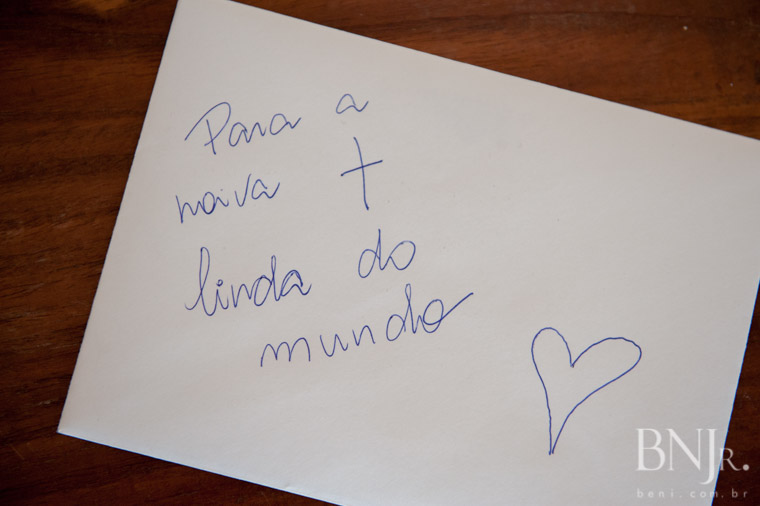 Para a
noiva +
linda do
mundo
BNJR.
beni.com.br